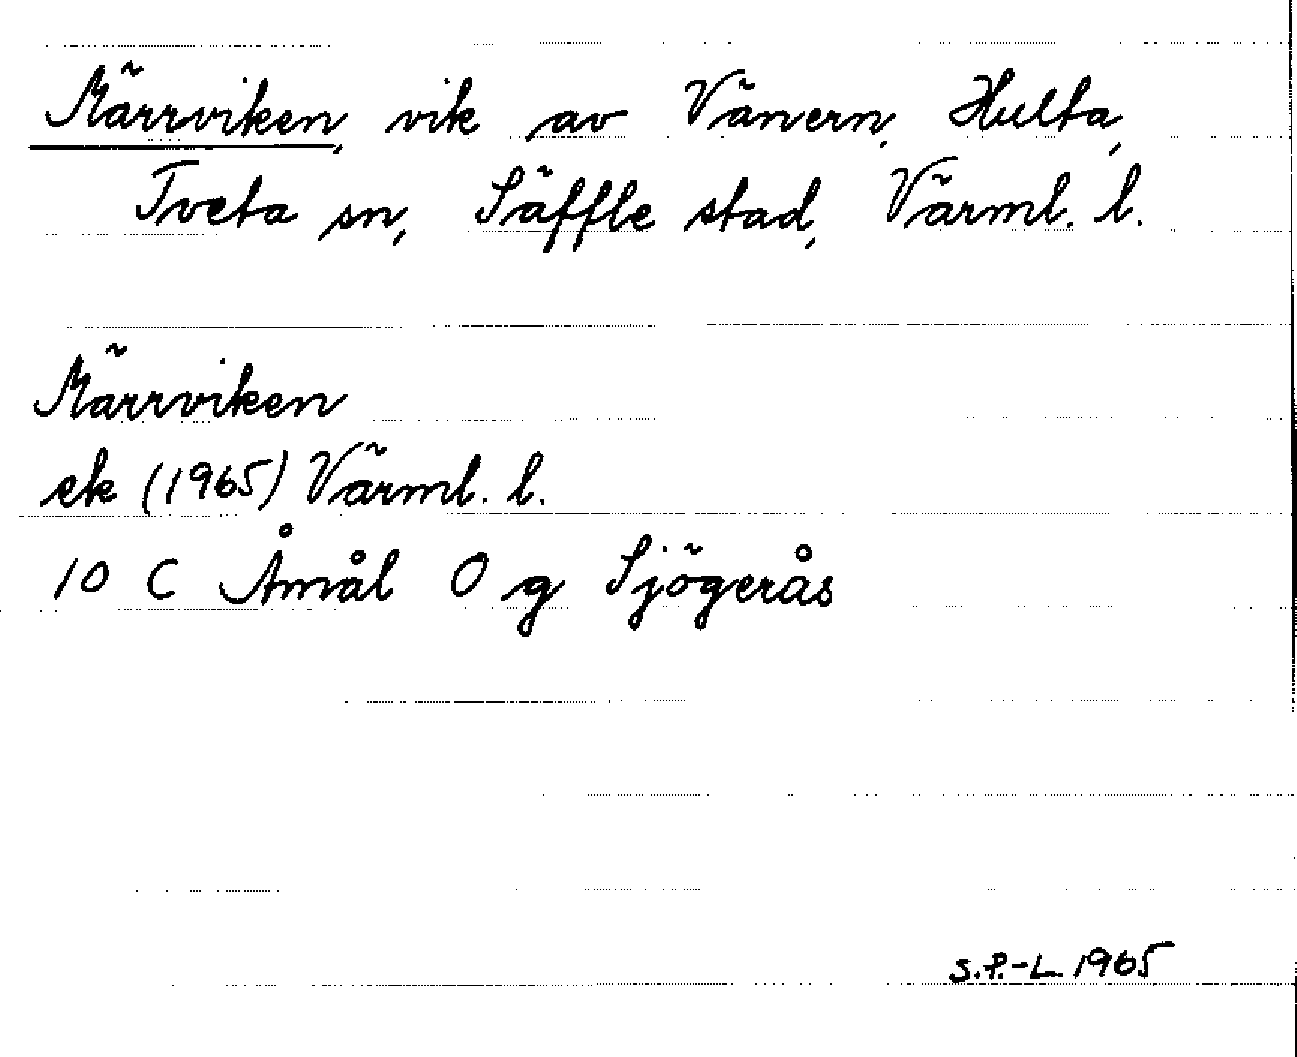 Märrviken, vik av Vänern, Hulta,
Tveta sn, Säffle stad, Värml. l.
Märrviken
ek (1965) Värml. l.
10 C Åmål O g Sjögerås
S.P.-L. 1965